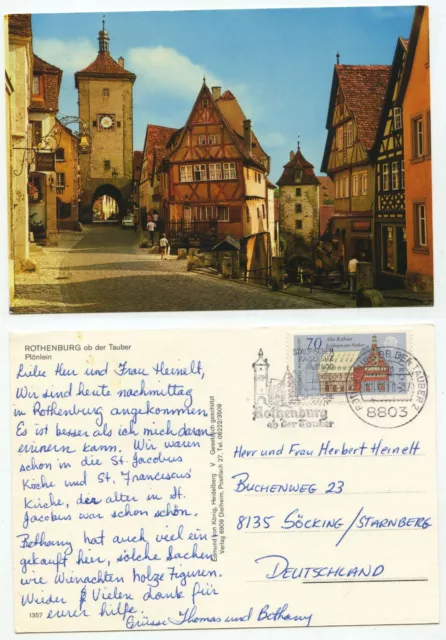 ROTHENBURG ob der Tauber
Plönlein
Liebe Herr und Frau Heinelt,
Wir sind heute nachmittag
in Rothenburg angekommen.
Es ist besser als ich mich daran
erinern kann. Wir waren
schon in die St. Jacobus
Kirche und St. Franciscus'
Kirche, der alter in St.
Jacobus war schon schön.
Bethany hat auch viel ein
gekauft hier, solche Sachen
wie Winachten holze Figuren.
Wieder & Vielen dank für
eurer hilfe.
Grüsse Thomas und Bethany
1307
Edmund von König, Heidelberg V Gesetzlich geschützt
Verlag 6909 Dielheim, Postfach 27, Tel. 06222/3509
Rothenburg
ob der Tauber
70
Altes Rathaus
Esslingen am Neckar
DER TAUBER 2
8803
Herr und Frau Herbert Heinelt
Buchenweg 23
8135 Söcking/Starnberg
Deutschland